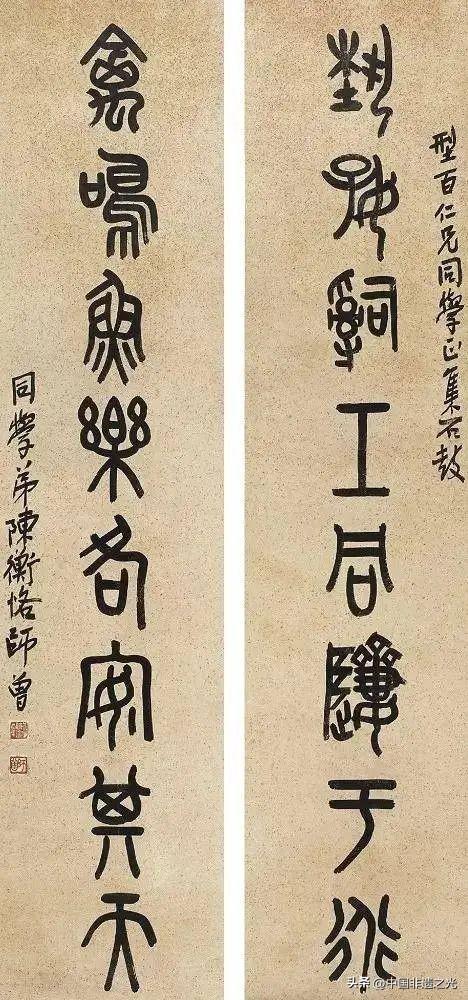 型百仁兄同學正集石鼓
好工同于
禽鳴魚樂各安其天
同學弟陳衡恪師曾
头条 @中国非遗之光